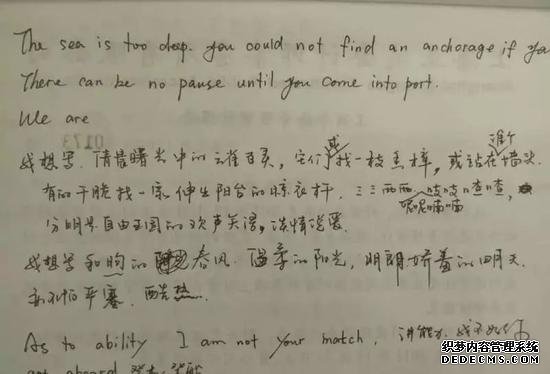 The sea is too deep. you could not find an anchorage if you
There can be no pause until you come into port.
We are
0173
我想写. 清晨曙光中的云雀百灵, 它们或找一枝香樟, 或站在谁个墙头
有的干脆找一家伸出阳台的晾衣杆, 三三两两 吱吱喳喳,
呢呢喃喃
分明是自由王国的欢声笑语, 谈情说爱
我想写和煦的春风 温柔的阳光, 明朗娇羞的四月天
酷热.
As to ability I am not your match, 讲能力 我不如你
get aboard
织梦内容管理系统
DEDECMS.COM